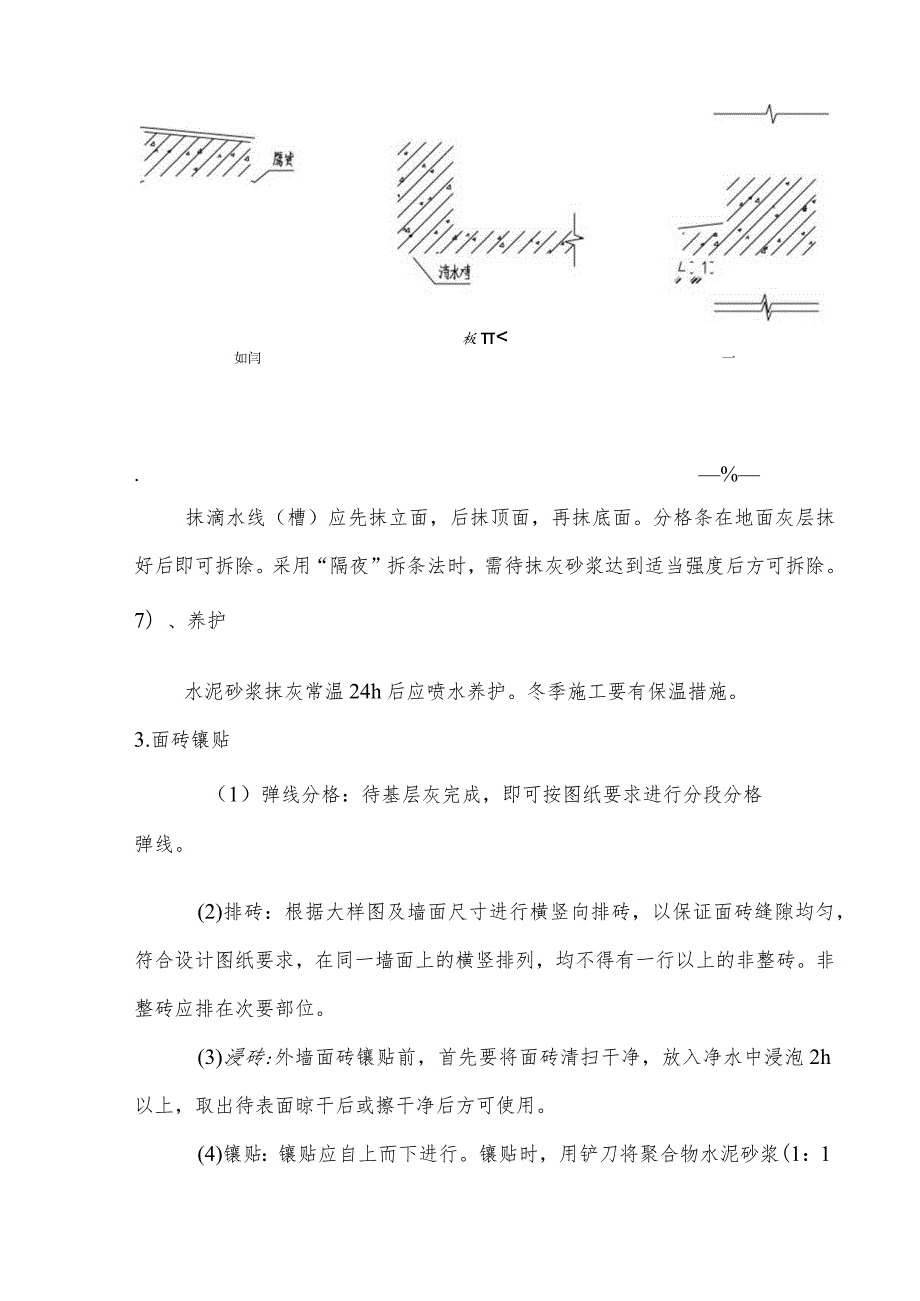 鹰嘴
滴水槽
板π<
如闫
一
.
—%—
抹滴水线（槽）应先抹立面，后抹顶面，再抹底面。分格条在地面灰层抹
好后即可拆除。采用“隔夜”拆条法时，需待抹灰砂浆达到适当强度后方可拆除。
7）、养护
水泥砂浆抹灰常温24h后应喷水养护。冬季施工要有保温措施。
3.面砖镶贴
（1）弹线分格：待基层灰完成，即可按图纸要求进行分段分格
弹线。
(2)排砖：根据大样图及墙面尺寸进行横竖向排砖，以保证面砖缝隙均匀，
符合设计图纸要求，在同一墙面上的横竖排列，均不得有一行以上的非整砖。非
整砖应排在次要部位。
(3)浸砖:外墙面砖镶贴前，首先要将面砖清扫干净，放入净水中浸泡2h
以上，取出待表面晾干后或擦干净后方可使用。
(4)镶贴：镶贴应自上而下进行。镶贴时，用铲刀将聚合物水泥砂浆(1：1